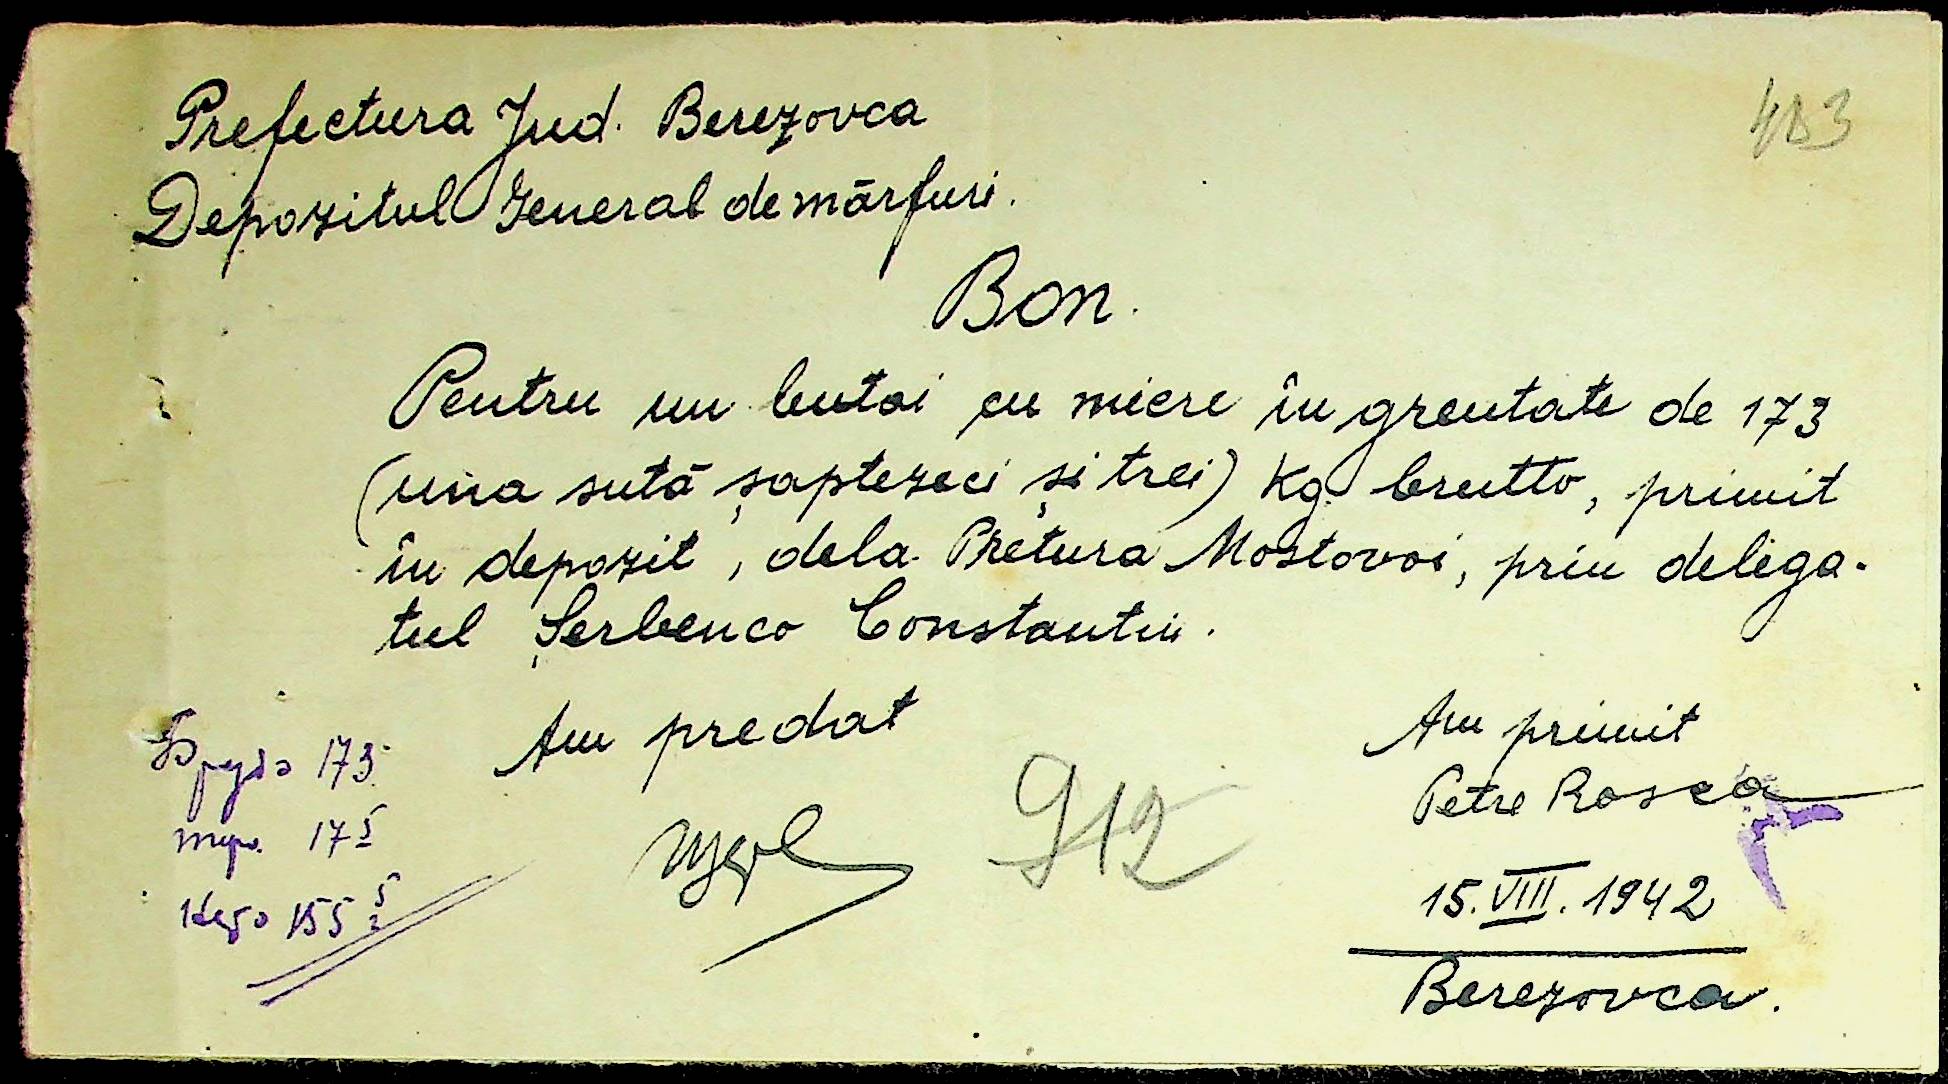 483
Prefectura Jud. Berezovca
Depozitul General de mărfuri.
Bon.
Pentru un butoi cu miere în greutate de 173
(una sută șaptezeci și trei) Kg brutto, primit
în depozit, dela Pretura Mostovoi, prin delega-
tul Șerbenco Constantin.
Am predat
Am primit
Petre Rosca
Брудо 173
тара 17 5
912
15.VIII.1942
155 5
Berezovca.